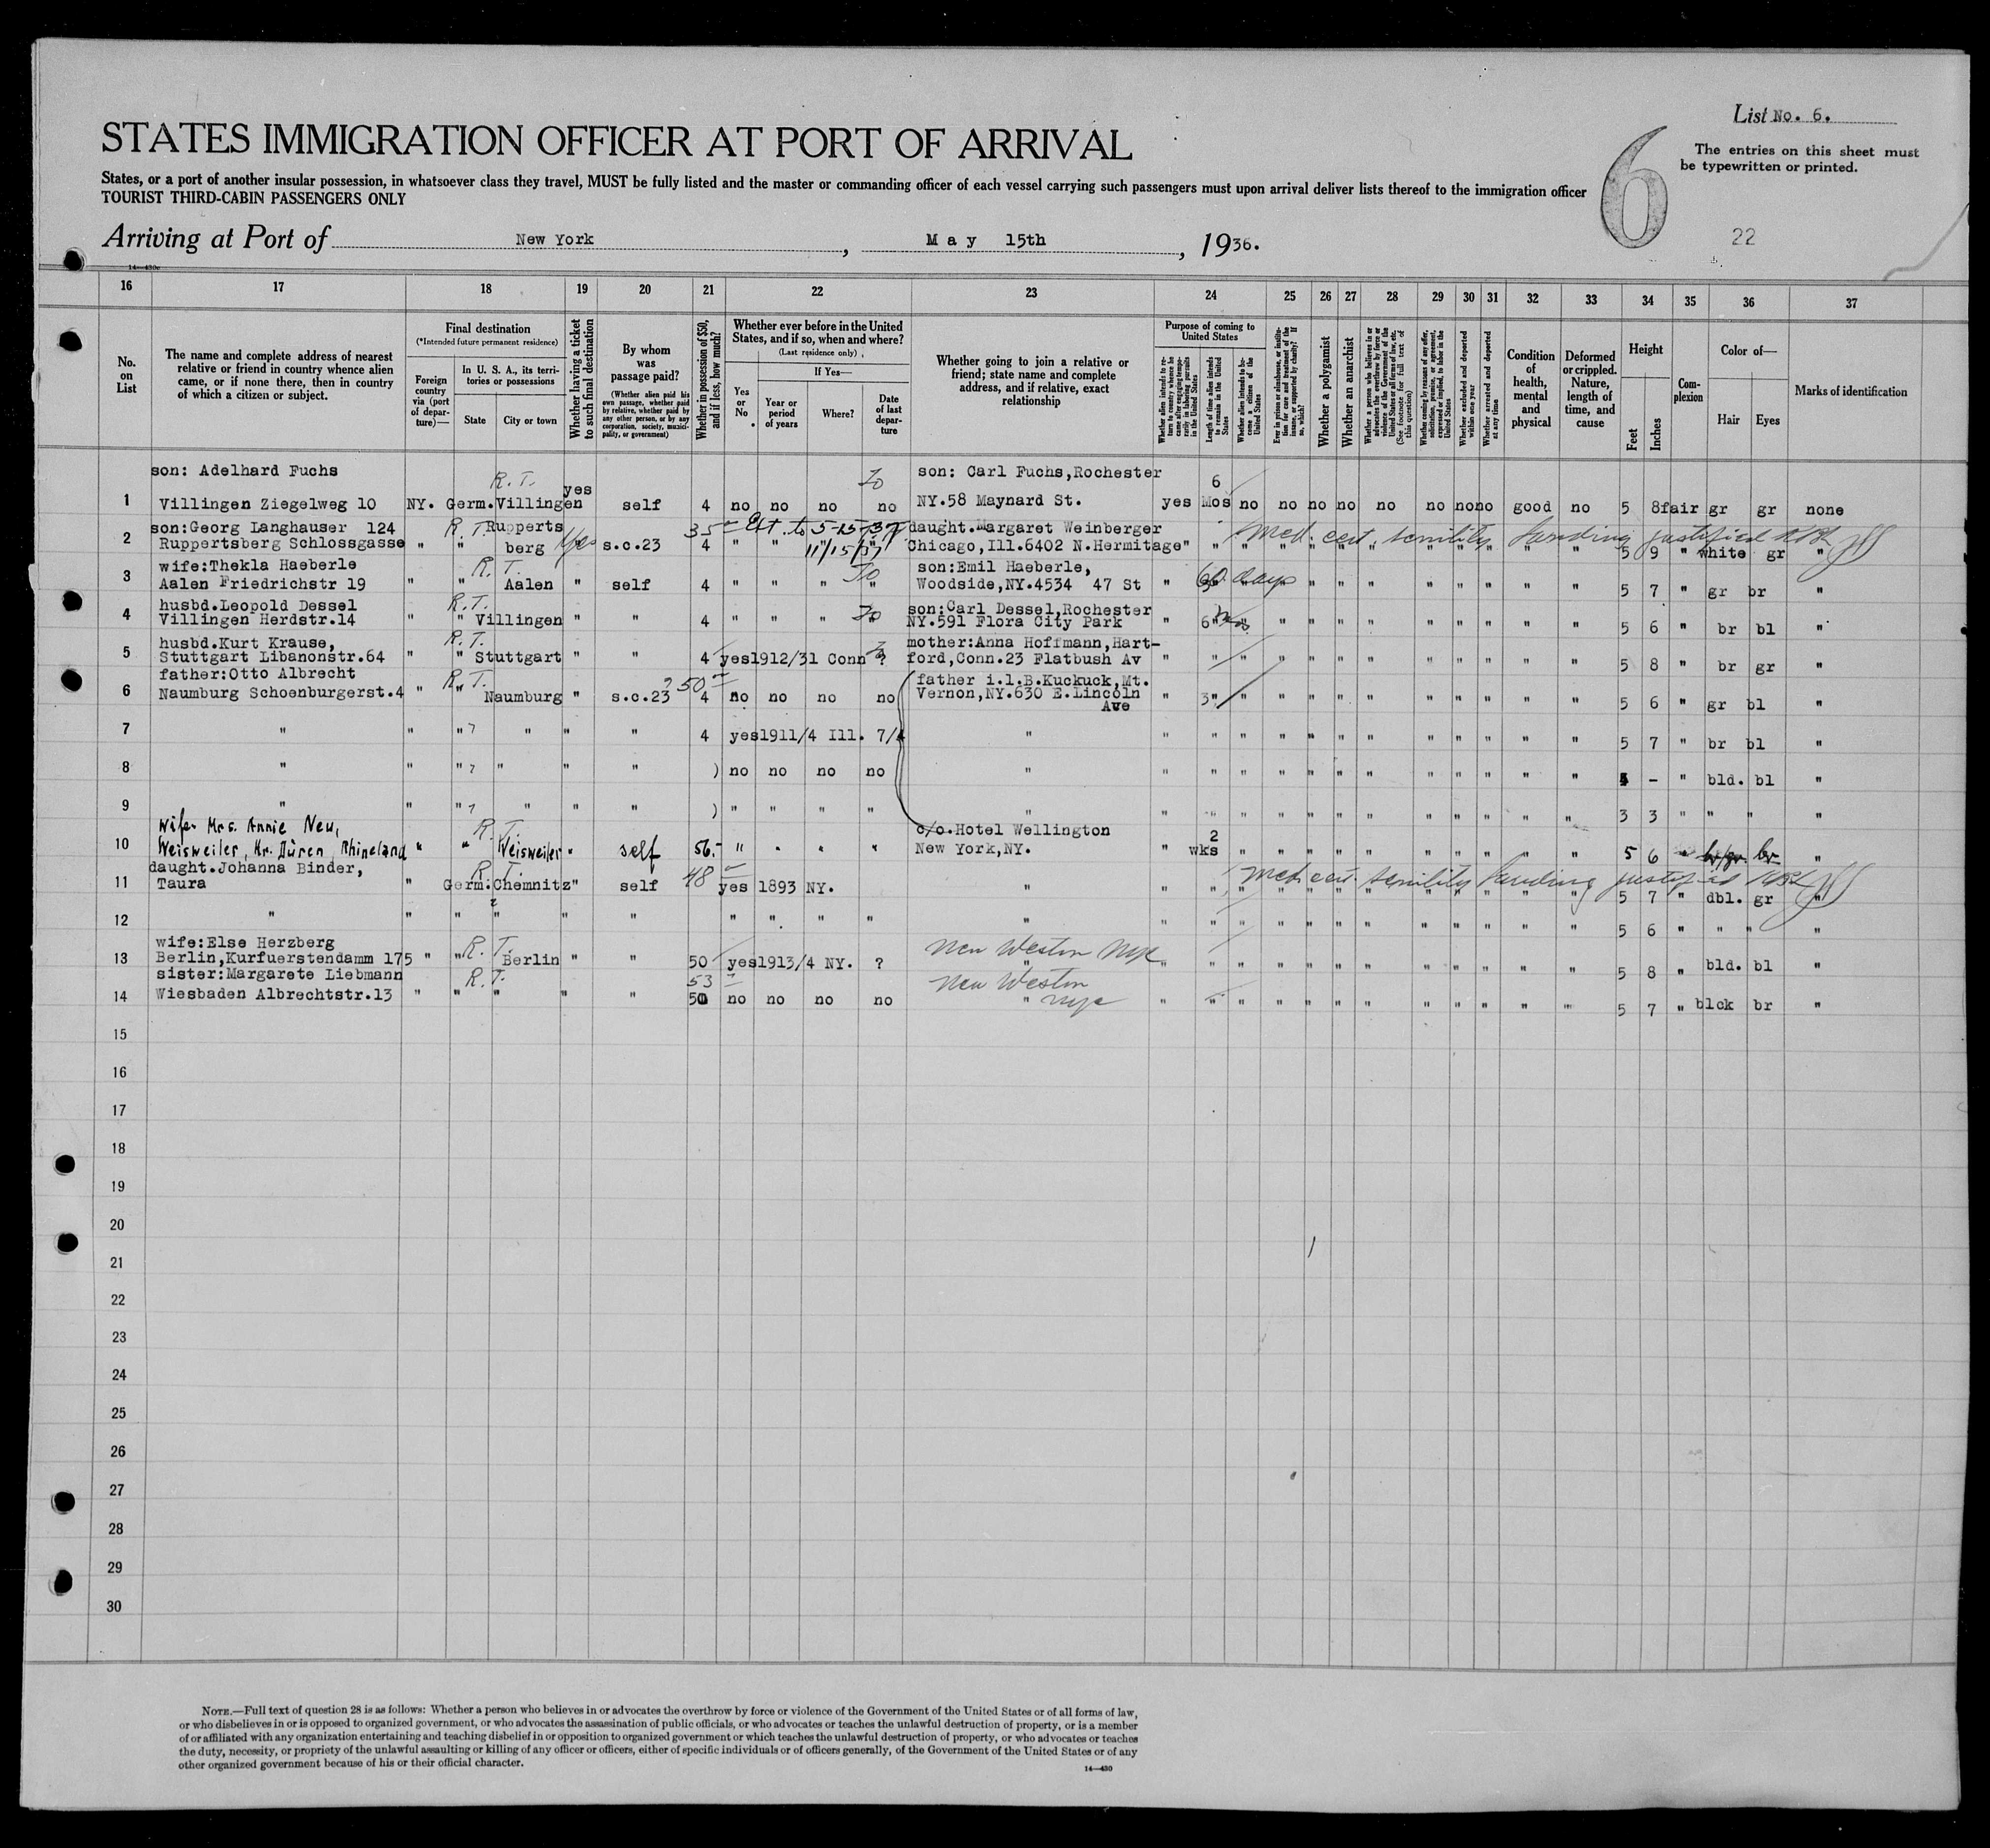 List No. 6.
STATES IMMIGRATION OFFICER AT PORT OF ARRIVAL
6
The entries on this sheet must
be typewritten or printed.
States, or a port of another insular possession, in whatsoever class they travel, MUST be fully listed and the master or commanding officer of each vessel carrying such passengers must upon arrival deliver lists thereof to the immigration officer
TOURIST THIRD-CABIN PASSENGERS ONLY
Arriving at Port of New York, May 15th, 1936.
22
16 17 18 19 20 21 22 23 24 25 26 27 28 29 30 31 32 33 34 35 36 37
No. on List
The name and complete address of nearest
relative or friend in country whence alien
came, or if none there, then in country
of which a citizen or subject.
Final destination
(*Intended future permanent residence)
Foreign country via (port of depar-ture)—
In U. S. A., its terri-tories or possessions
State
City or town
Whether having a ticket to such final destination
By whom was passage paid?
(Whether alien paid his own passage, whether paid by relative, whether paid by any other person, or by any corporation, society, munici-pality, or government)
Whether in possession of $50, and if less, how much?
Whether ever before in the United
States, and if so, when and where?
(Last residence only)
Yes or No
If Yes—
Year or period of years
Where?
Date of last depar-ture
Whether going to join a relative or
friend; state name and complete
address, and if relative, exact
relationship
Purpose of coming to
United States
Whether alien intends to re-turn to country whence he came after engaging tempo-rarily in laboring pursuits in the United States
Length of time alien intends to remain in the United States
Whether alien intends to be-come a citizen of the United States
Ever in prison or almshouse, or institu-tion for care and treatment of the insane, or supported by charity? If so, which?
Whether a polygamist
Whether an anarchist
Whether coming by reasons of any offer, solicitation, promise, or agreement, expressed or implied, to labor in the United States
Whether excluded and deported within one year
Whether arrested and deported at any time
Condition of health, mental and physical
Deformed or crippled. Nature, length of time, and cause
Height
Feet
Inches
Com-plexion
Color of—
Hair
Eyes
Marks of identification
son: Adelhard Fuchs R. T. yes son: Carl Fuchs,Rochester 6
1 Villingen Ziegelweg 10 NY. Germ. Villingen self 4 no no no no NY.58 Maynard St. yes Mos no no no no no no no no good no 5 8 fair gr gr none
son:Georg Langhauser 124 R. T. Rupperts 35 Ext. to 5-15-37 daught.Margaret Weinberger Med. cert. senility landing justified
2 Ruppertsberg Schlossgasse " " berg yes s.c.23 4 " " 11/15/37 " Chicago,Ill.6402 N.Hermitage" " " " " " " " " " " " 5 9 " white gr "
wife:Thekla Haeberle R. T. son:Emil Haeberle,
3 Aalen Friedrichstr 19 " " Aalen " self 4 " " " " Woodside,NY.4534 47 St " 60 days " " " " " " " " " 5 7 " gr br "
husbd.Leopold Dessel R. T. son:Carl Dessel,Rochester
4 Villingen Herdstr.14 " " Villingen " " 4 " " " NY.591 Flora City Park " 6 " " " " " " " " " " 5 6 " br bl "
husbd.Kurt Krause, R. T. mother:Anna Hoffmann,Hart-
5 Stuttgart Libanonstr.64 " " Stuttgart " " 4 yes 1912/31 Conn ? ford,Conn.23 Flatbush Av " " " " " " " " " " " " 5 8 " br gr "
father:Otto Albrecht R. T. 50 father i.l.B.Kuckuck,Mt.
6 Naumburg Schoenburgerst.4 " " Naumburg " s.c.23 4 no no no no Vernon,NY.630 E.Lincoln Ave " 3" " " " " " " " " " " 5 6 " gr bl "
7 " " " ? " " " 4 yes 1911/4 Ill. 7/4 " " " " " " " " " " " " " 5 7 " br bl "
8 " " " ? " " " ) no no no no " " " " " " " " " " " " " - " bld. bl "
9 " " " ? " " " ) " " " " " " " " " " " " " " " " " 3 3 " " " "
wife Mrs. Annie Neu, R. T. c/o.Hotel Wellington 2
10 Weisweiler, Kr. Düren, Rhineland " " Weisweiler " self 56.- " " " " New York,NY. " wks " " " " " " " " " " 5 6 " br "
daught.Johanna Binder, R. T. 48 Med cert. senility landing justified
11 Taura " Germ. Chemnitz " self yes 1893 NY. " " " " " " " " " " " " " 5 7 " dbl. gr "
12 " " " " " " " " " " " " " " " " " " " " " " " 5 6 " " " "
wife:Else Herzberg R. T. New Weston NYC
13 Berlin,Kurfuerstendamm 175 " " Berlin " " 50 yes 1913/4 NY. ? " " " " " " " " " " " " " 5 8 " bld. bl "
sister:Margarete Liebmann R. T. 53 New Weston
14 Wiesbaden Albrechtstr.13 " " " " " 50 no no no no " NYC " " " " " " " " " " " " 5 7 " blck br "
15
16
17
18
19
20
21
22
23
24
25
26
27
28
29
30
NOTE.—Full text of question 28 is as follows: Whether a person who believes in or advocates the overthrow by force or violence of the Government of the United States or of all forms of law,
or who disbelieves in or is opposed to organized government, or who advocates the assassination of public officials, or who advocates or teaches the unlawful destruction of property, or is a member
of or affiliated with any organization entertaining and teaching disbelief in or opposition to organized government or which teaches the unlawful destruction of property, or who advocates or teaches
the duty, necessity, or propriety of the unlawful assaulting or killing of any officer or officers, either of specific individuals or of officers generally, of the Government of the United States or of any
other organized government because of his or their official character.
14—430